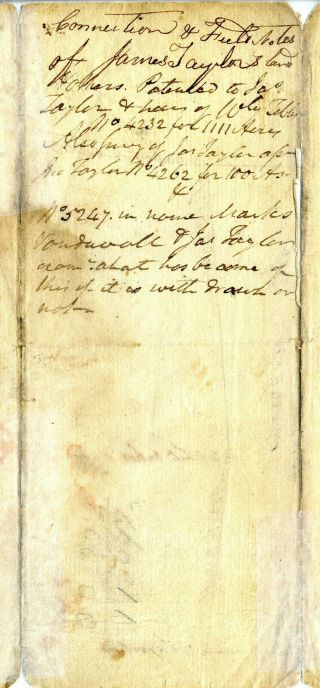 Connection & Field Notes
of James Taylors land
& others. Patented to Jas
Taylor & heirs of Wm
No 4232 for 1111 Acres
Also of Jas Taylor
Taylor No 4262 for 100
&c
No 5247. in name Marks
Vanduvall & Jas Taylor
what has become of
this if it is with drawn or
not